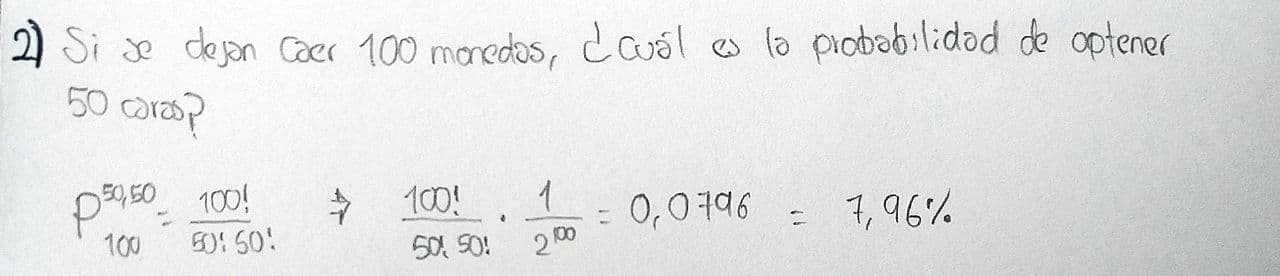 2) Si se dejan caer 100 monedas, ¿cuál es la probabilidad de optener
50 caras?
P^{50,50}_{100} = \frac{100!}{50! 50!} ⇒ \frac{100!}{50! 50!} · \frac{1}{2^{100}} = 0,0796 = 7,96%